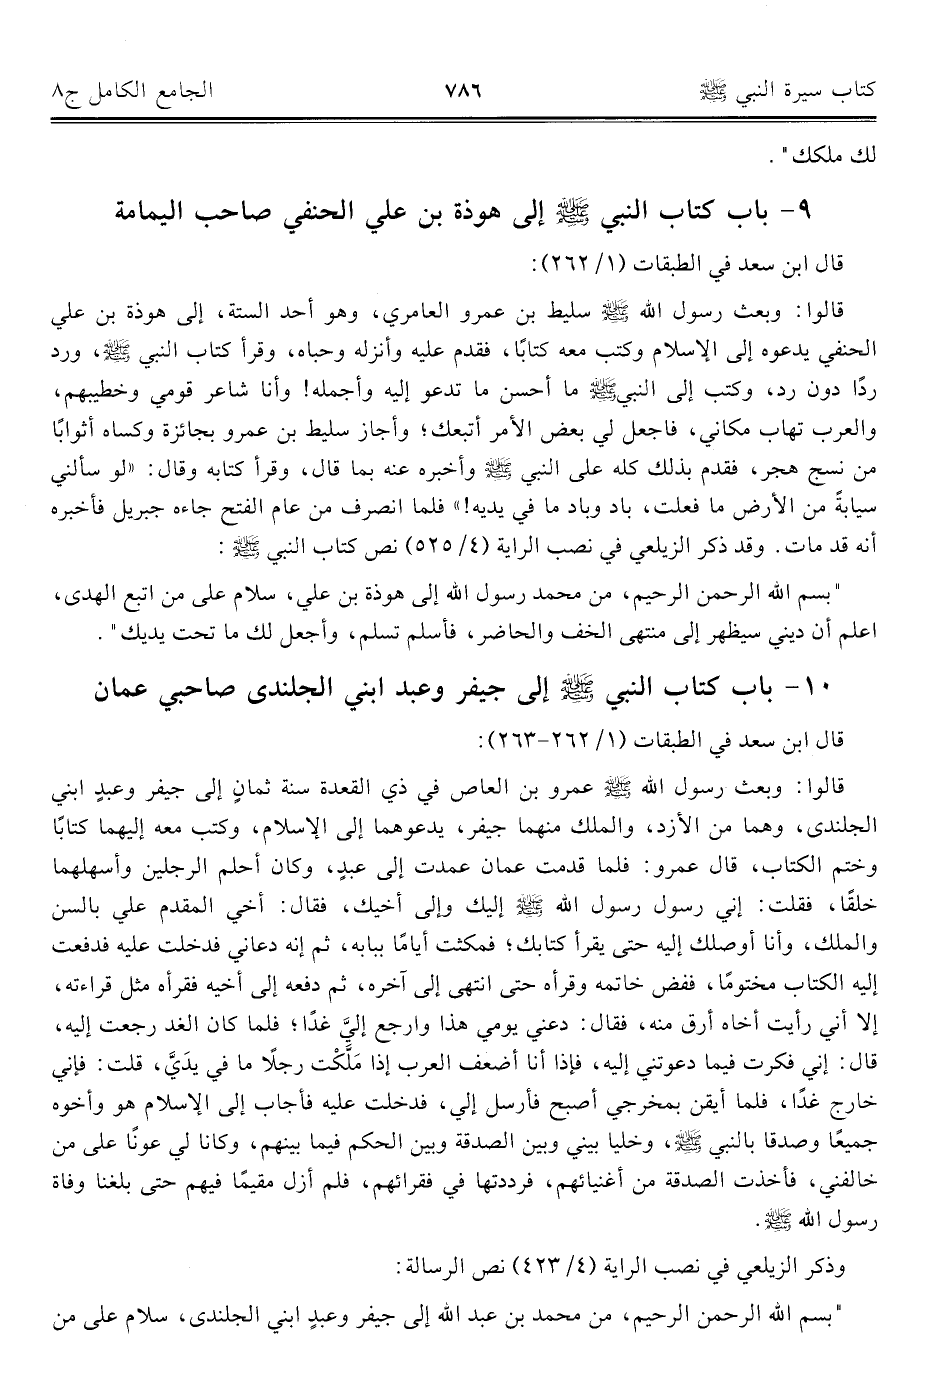 كتاب سيرة النبي ﷺ ٧٨٦ الجامع الكامل ج٨
لك ملكك" .
٩- باب كتاب النبي ﷺ إلى هوذة بن علي الحنفي صاحب اليمامة
قال ابن سعد في الطبقات (١/ ٢٦٢):
قالوا: وبعث رسول الله ﷺ سليط بن عمرو العامري، وهو أحد الستة، إلى هوذة بن علي
الحنفي يدعوه إلى الإسلام وكتب معه كتابًا، فقدم عليه وأنزله وحباه، وقرأ كتاب النبي ﷺ، ورد
ردًا دون رد، وكتب إلى النبيﷺ ما أحسن ما تدعو إليه وأجمله! وأنا شاعر قومي وخطيبهم،
والعرب تهاب مكاني، فاجعل لي بعض الأمر أتبعك؛ وأجاز سليط بن عمرو بجائزة وكساه أثوابًا
من نسج هجر، فقدم بذلك كله على النبي ﷺ وأخبره عنه بما قال، وقرأ كتابه وقال: «لو سألني
سيابةً من الأرض ما فعلت، باد وباد ما في يديه!» فلما انصرف من عام الفتح جاءه جبريل فأخبره
أنه قد مات. وقد ذكر الزيلعي في نصب الراية (٤/ ٥٢٥) نص كتاب النبي ﷺ :
"بسم الله الرحمن الرحيم، من محمد رسول الله إلى هوذة بن علي، سلام على من اتبع الهدى،
اعلم أن ديني سيظهر إلى منتهى الخف والحاضر، فأسلم تسلم، وأجعل لك ما تحت يديك" .
١٠- باب كتاب النبي ﷺ إلى جيفر وعبد ابني الجلندى صاحبي عمان
قال ابن سعد في الطبقات (١/ ٢٦٢-٢٦٣):
قالوا: وبعث رسول الله ﷺ عمرو بن العاص في ذي القعدة سنة ثمانٍ إلى جيفر وعبدٍ ابني
الجلندى، وهما من الأزد، والملك منهما جيفر، يدعوهما إلى الإسلام، وكتب معه إليهما كتابًا
وختم الكتاب، قال عمرو: فلما قدمت عمان عمدت إلى عبدٍ، وكان أحلم الرجلين وأسهلهما
خلقًا، فقلت: إني رسول رسول الله ﷺ إليك وإلى أخيك، فقال: أخي المقدم علي بالسن
والملك، وأنا أوصلك إليه حتى يقرأ كتابك؛ فمكثت أيامًا ببابه، ثم إنه دعاني فدخلت عليه فدفعت
إليه الكتاب مختومًا، ففض خاتمه وقرأه حتى انتهى إلى آخره، ثم دفعه إلى أخيه فقرأه مثل قراءته،
إلا أني رأيت أخاه أرق منه، فقال: دعني يومي هذا وارجع إليَّ غدًا؛ فلما كان الغد رجعت إليه،
قال: إني فكرت فيما دعوتني إليه، فإذا أنا أضعف العرب إذا مَلَّكْت رجلًا ما في يدَيَّ، قلت: فإني
خارج غدًا، فلما أيقن بمخرجي أصبح فأرسل إلي، فدخلت عليه فأجاب إلى الإسلام هو وأخوه
جميعًا وصدقا بالنبي ﷺ، وخليا بيني وبين الصدقة وبين الحكم فيما بينهم، وكانا لي عونًا على من
خالفني، فأخذت الصدقة من أغنيائهم، فرددتها في فقرائهم، فلم أزل مقيمًا فيهم حتى بلغنا وفاة
رسول الله ﷺ.
وذكر الزيلعي في نصب الراية (٤/ ٤٢٣) نص الرسالة:
"بسم الله الرحمن الرحيم، من محمد بن عبد الله إلى جيفر وعبدٍ ابني الجلندى، سلام على من